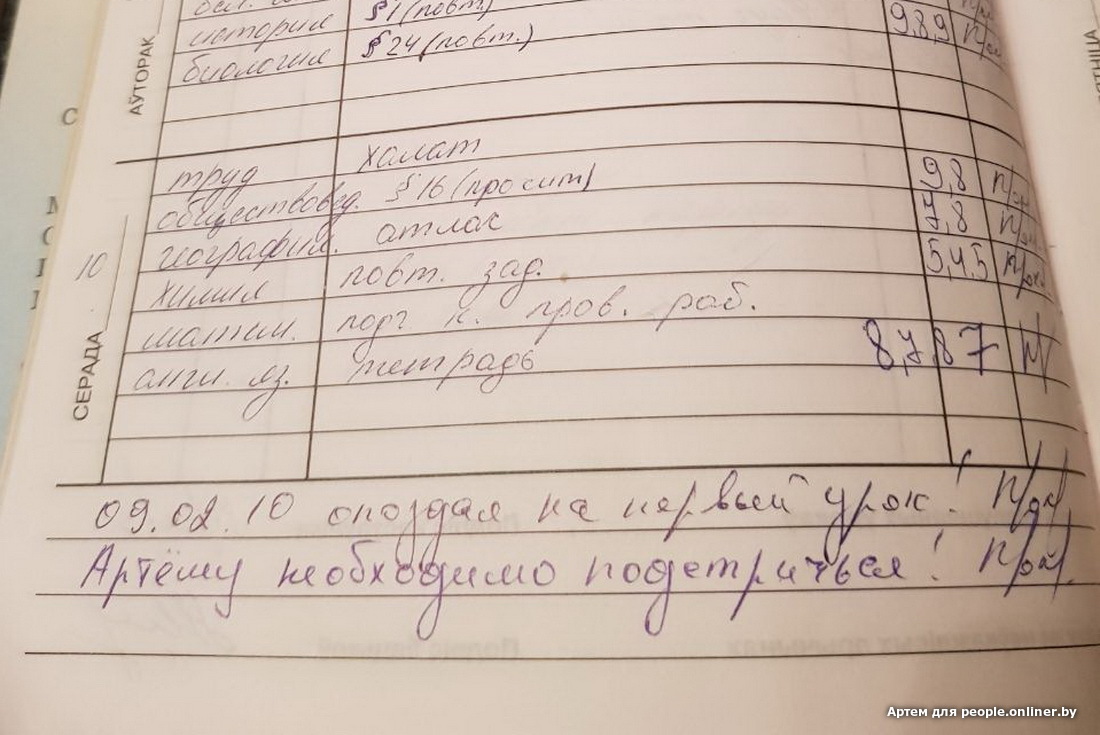 АЎТОРАК
история §1 (повт.) 9,8,9
биология §24 (повт.)
СЕРАДА 10
труд халат
обществовед. §16 (просит) 9,8
география. атлас 7,8
химия повт. зад. 5,4.5
матем. подг к. пров. раб.
англ. яз. тетрадь 8,7,8 7
09.02.10 опоздал на первый урок!
Артёму необходимо подстричься!
Артем для people.onliner.by